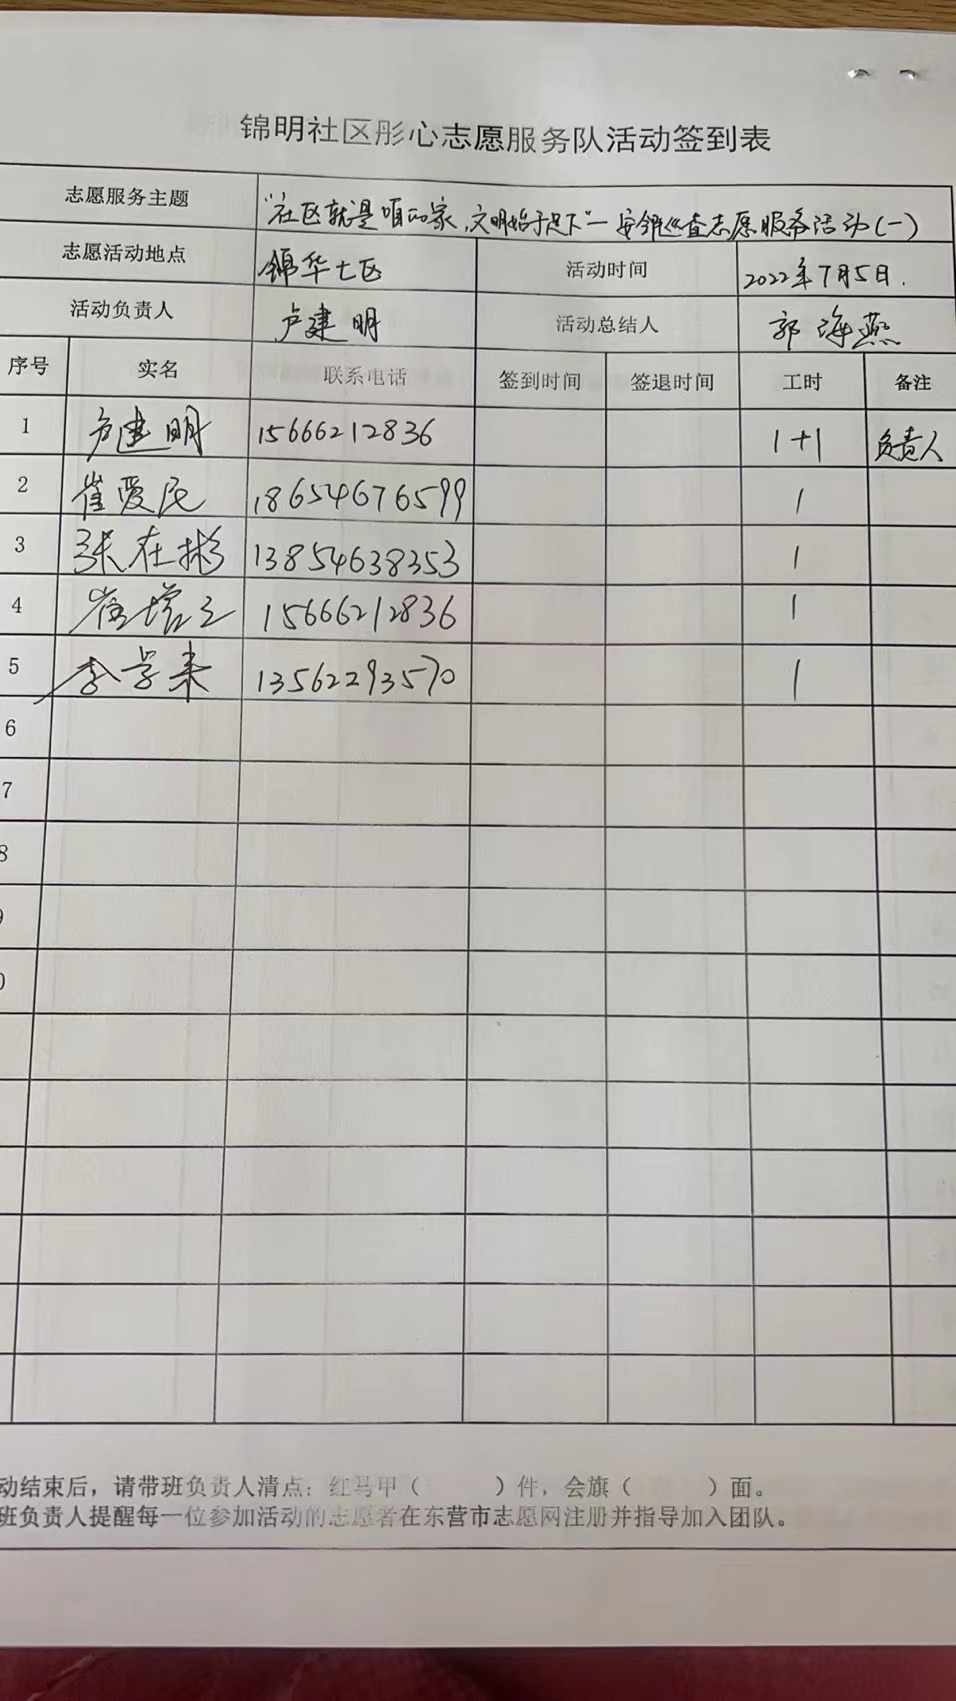 锦明社区彤心志愿服务队活动签到表
志愿服务主题 "社区就是咱的家，文明始于足下"一安全巡查志愿服务活动(一)
志愿活动地点 锦华七区 活动时间 2022年7月5日.
活动负责人 卢建明 活动总结人 郭海燕
序号 实名 联系电话 签到时间 签退时间 工时 备注
1 卢建明 15666212836 1+1 负责人
2 崔爱民 18654676599 1
3 张在彬 13854638353 1
4 崔增之 15666212836 1
5 李学来 13562293570 1
6
7
8
9
0
动结束后，请带班负责人清点：红马甲（ ）件，会旗（ ）面。
班负责人提醒每一位参加活动的志愿者在东营市志愿网注册并指导加入团队。